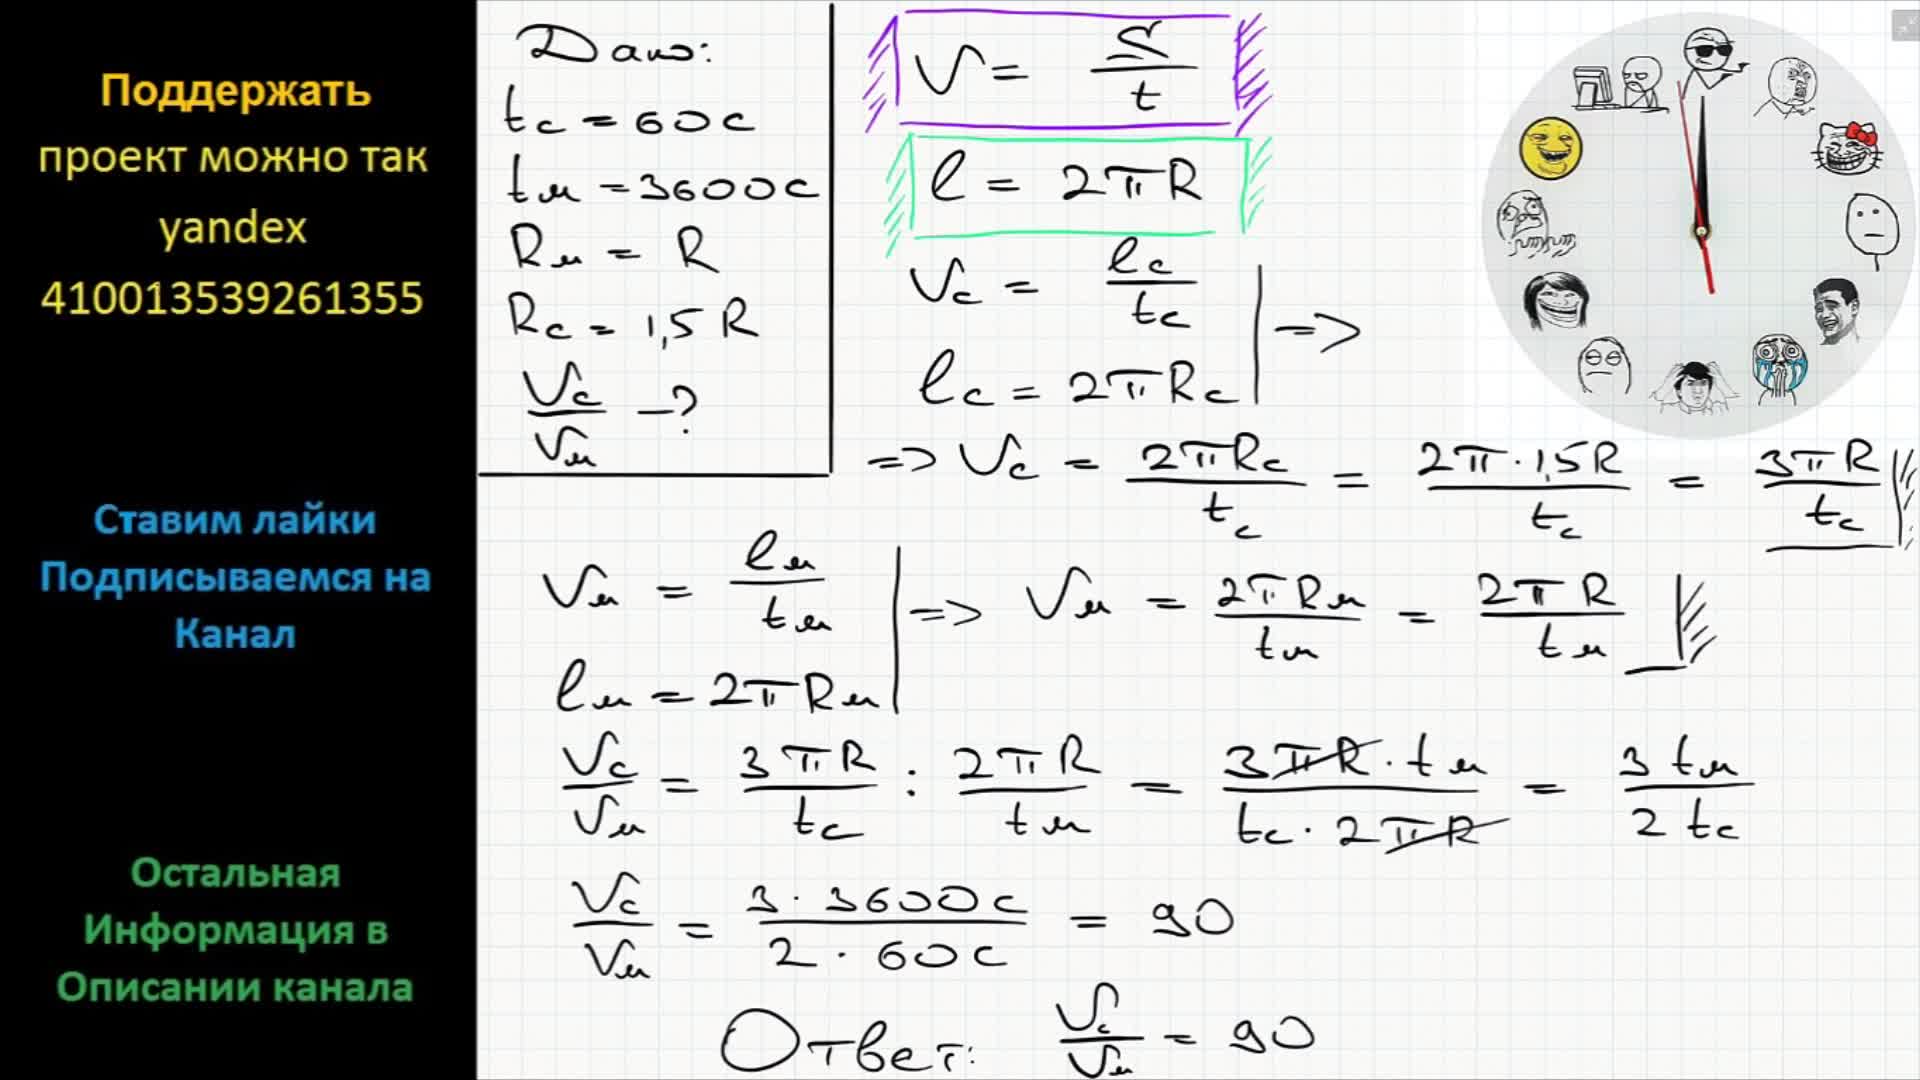 Поддержать
проект можно так
yandex
410013539261355
Ставим лайки
Подписываемся на
Канал
Остальная
Информация в
Описании канала
Дано:
tc = 60 c
tм = 3600 c
Rм = R
Rc = 1,5 R
Vc/Vм - ?
V = S/t
l = 2πR
Vc = lc/tc
lc = 2πRc | =>
=> Vc = 2πRc/tc = 2π·1,5R/tc = 3πR/tc
Vм = lм/tм
lм = 2πRм | => Vм = 2πRм/tм = 2πR/tм
Vc/Vм = 3πR/tc : 2πR/tм = 3πR·tм/tc·2πR = 3tм/2tc
Vc/Vм = 3·3600c/2·60c = 90
Ответ: Vc/Vм = 90